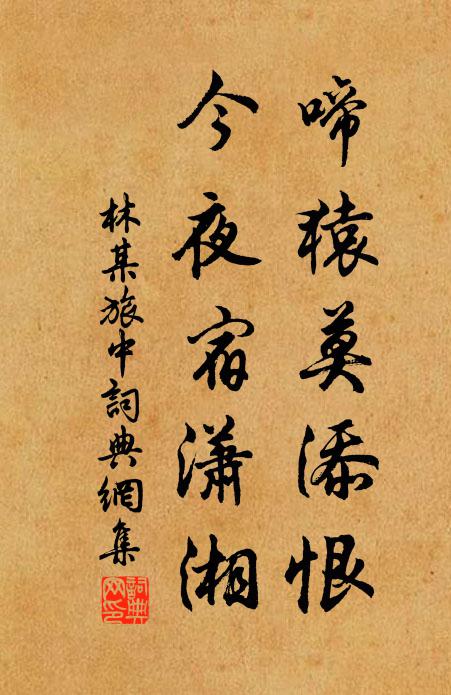 啼猿莫添恨
今夜宿瀟湘
林某旅中詞典網集
詞典网印